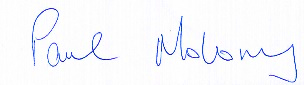 Paul Molony